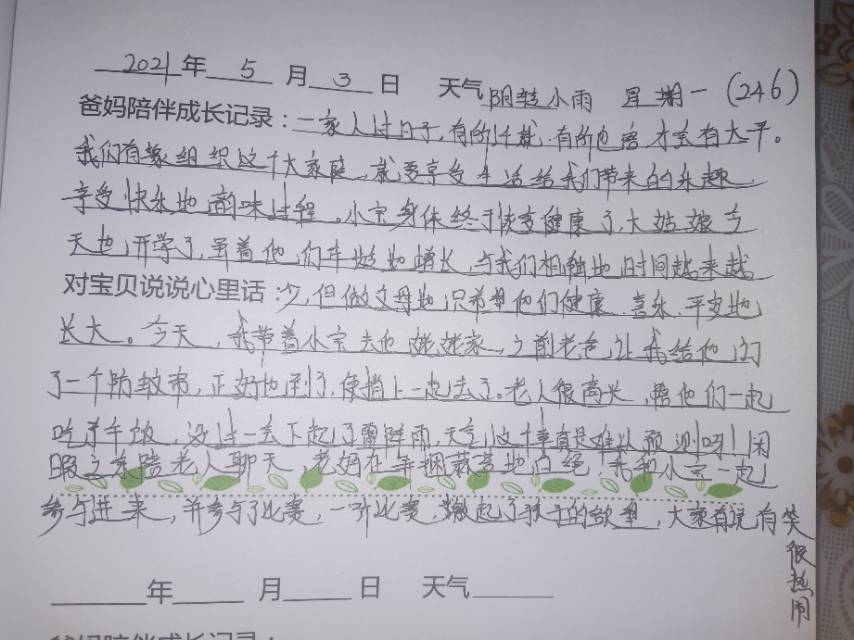 2021年 5 月 3 日 天气 阴转小雨 星期一 (246)
爸妈陪伴成长记录：一家人过日子，有所、有所包容才会有太平。
我们有缘组织这个大家庭，就要享受生活给我们带来的乐趣
享受快乐地韵味过程。小宝身体终于恢复健康了，大姑娘今
天也开学了，虽着他们年龄地增长，与我们相触地时间越来越
对宝贝说说心里话：少，但做父母地只希望他们健康、喜乐、平安地
长大。今天，我带着小宝去他姥姥家，之前老爸让我给他订
了一个防蚊帘，正好也到了，便捎上一起去了。老人很高兴，帮他们一起
吃了午饭，没过一会下起了雷阵雨，天气这个事真是难以预测呀！闲
暇之余陪老人聊天，老妈在弄捆蒜薹地白绳，我和小宝一起
参与进来，并参与了比赛，一听比赛，激起了孩子的欲望，大家有说有笑
很热闹
年 月 日 天气
爸妈陪伴成长记录：